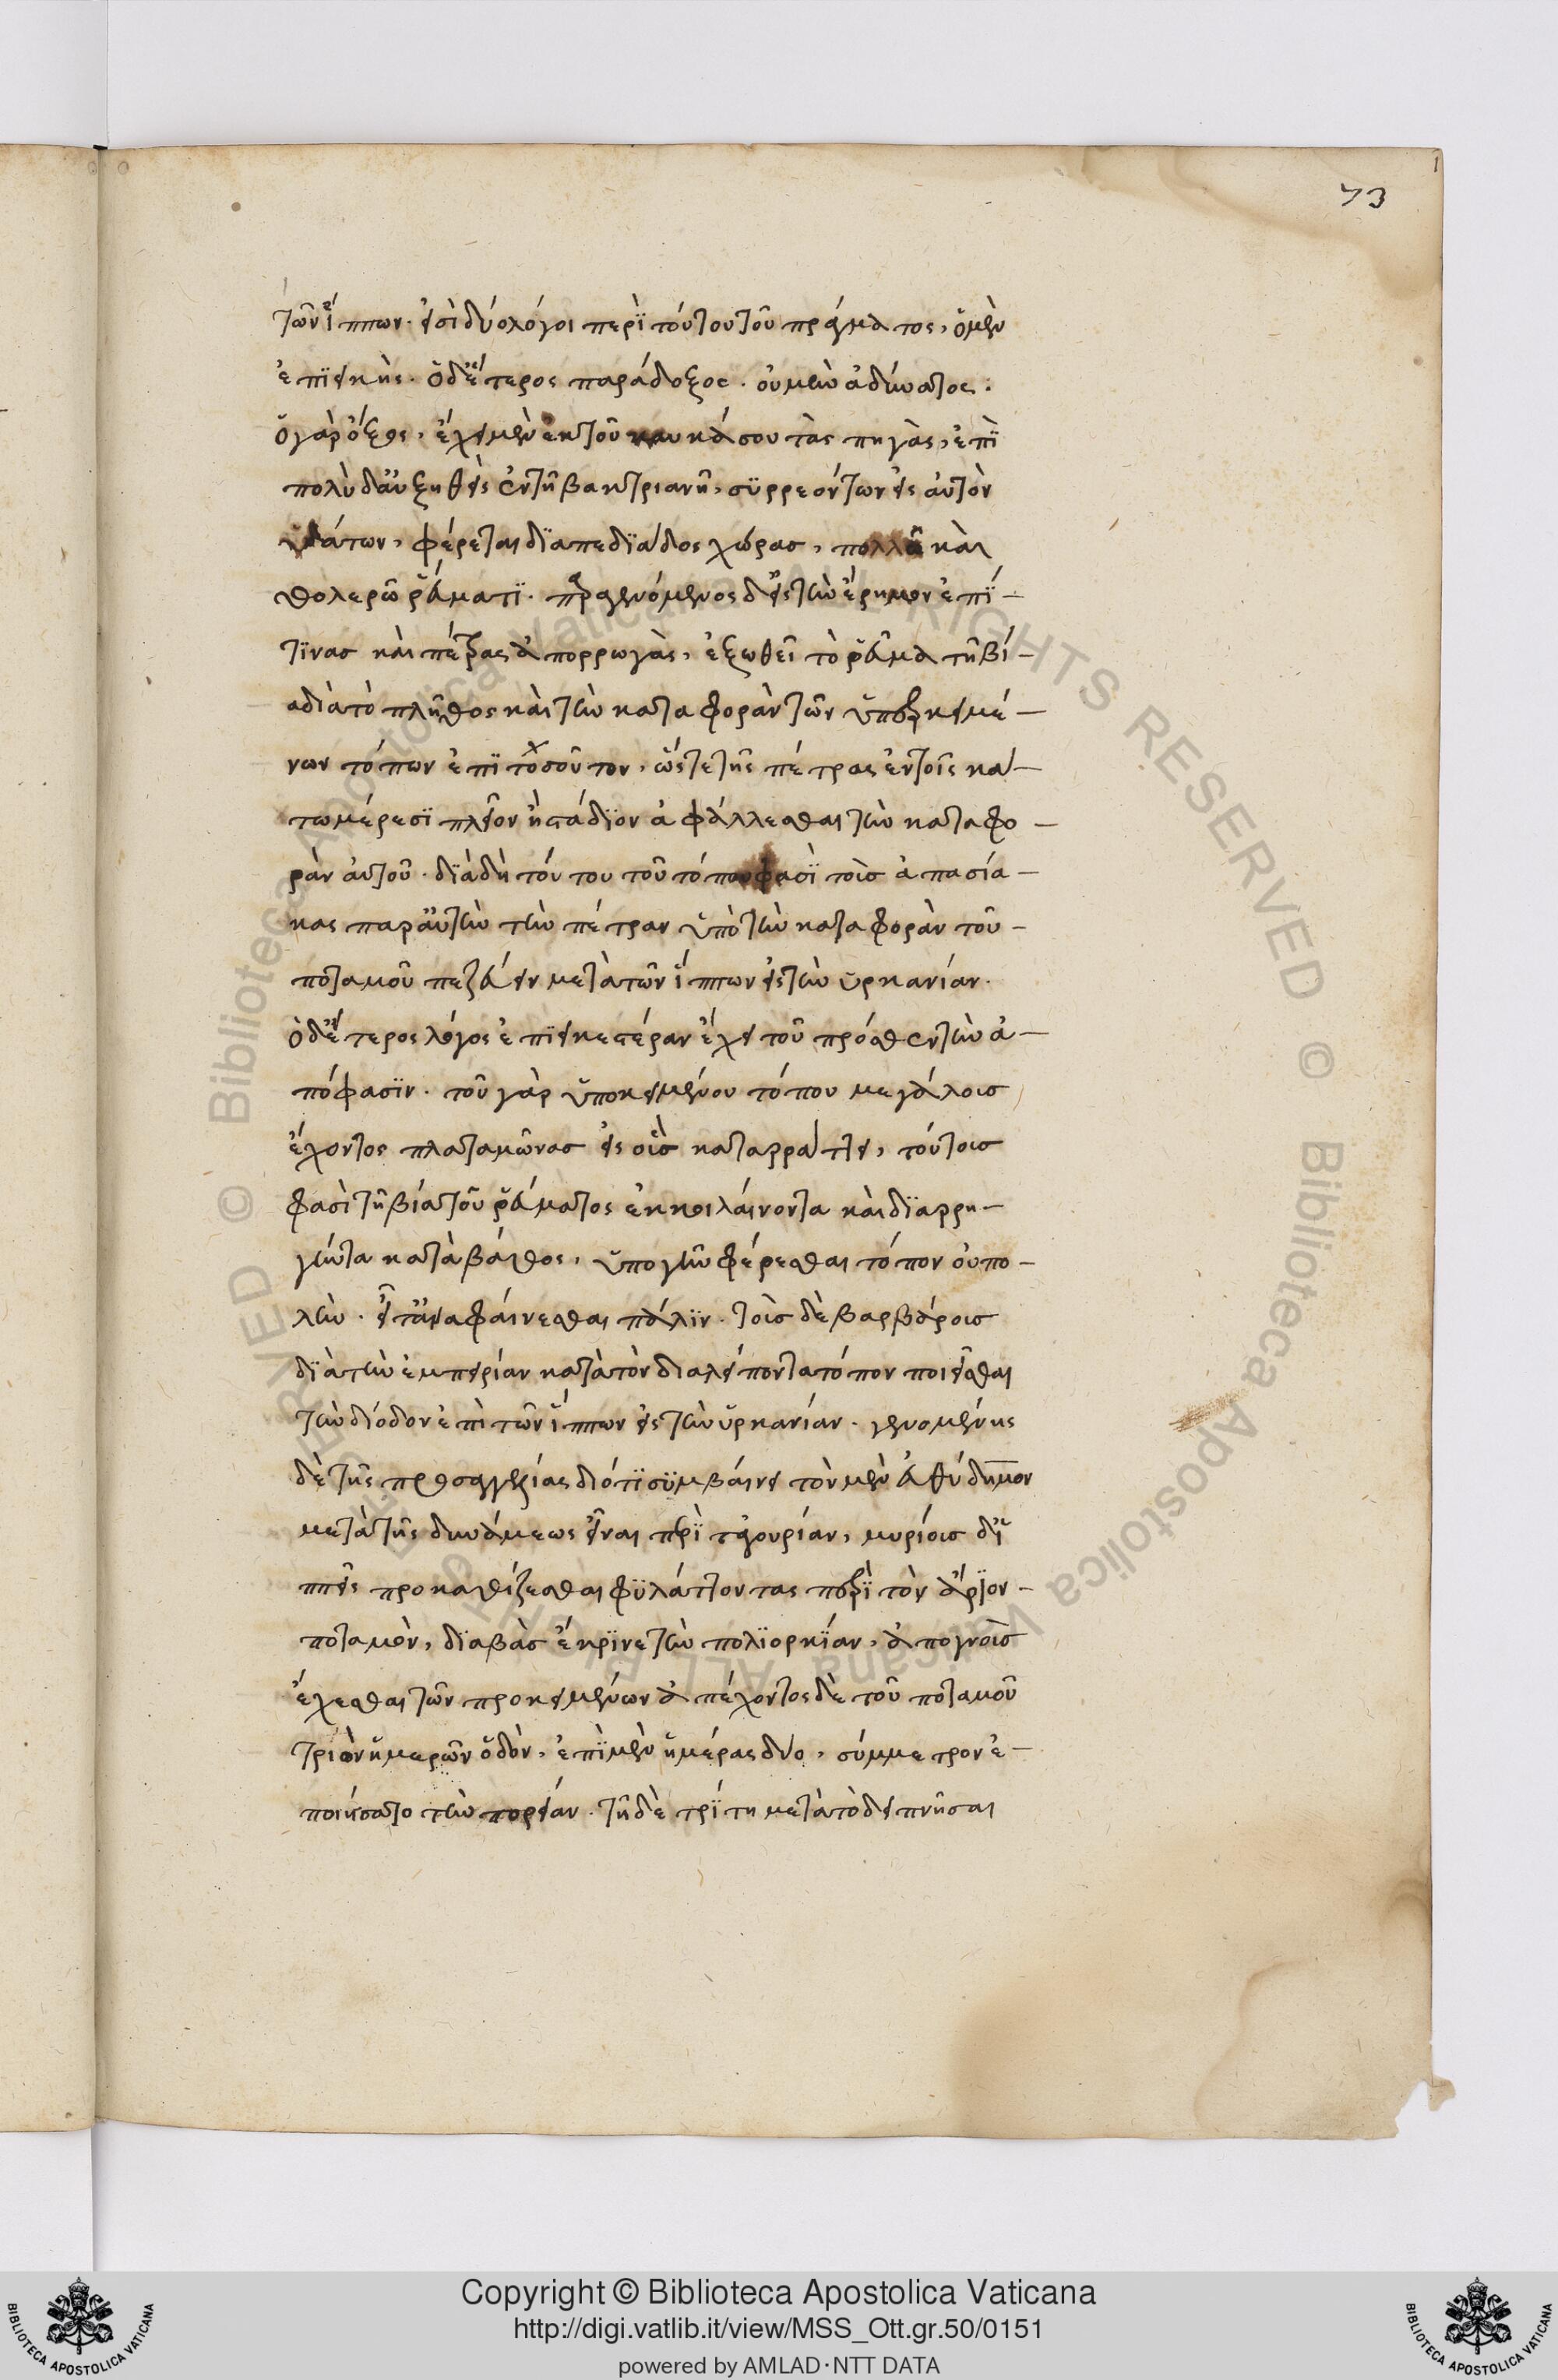 73
τῶν ἵππων. εἰσὶ δύο λόγοι περὶ τούτου τοῦ πράγματος, ὁ μὲν
ἐπιεικὴς. ὁ δ' ἕτερος παράδοξος. οὐ μὴν ἀδύνατος.
ὁ γὰρ ὄξος, ἔχει μὲν ἐκ τοῦ καυκάσου τὰς πηγὰς, ἐπὶ
πολὺ δ' αὐξηθεὶς ἐν τῇ βακτριανῇ, συρρεόντων εἰς αὐτὸν
ὑδάτων, φέρεται διὰ πεδιάδος χώρας, πολλῶ καὶ
θολερῶ ῥεύματι. παραγενόμενος δ' εἰς τὴν ἔρημον ἐπί
τινας καὶ πέτρας ἀπορρωγὰς, ἐξωθεῖ τὸ ῥεῦμα τῇ βί-
α διὰ τὸ πλῆθος καὶ τὴν καταφορὰν τῶν ὑπερκειμέ-
νων τόπων ἐπὶ τοσοῦτον, ὥστε τῆς πέτρας ἐν τοῖς κά-
τω μέρεσι πλεῖον ἢ στάδιον ἀφάλλεσθαι τὴν καταφο-
ρὰν αὐτοῦ. διὰ δὴ τούτου τοῦ τόπου φασὶ τοὶς ἀπασιά-
κας παρ' αὐτὴν τὴν πέτραν ὑπὸ τὴν καταφορὰν τοῦ
ποταμοῦ πεζεύειν μετὰ τῶν ἵππων εἰς τὴν ὑρκανίαν.
ὁ δ' ἕτερος λόγος ἐπιεικεστέραν ἔχει τοῦ πρόσθεν τὴν ἀ-
πόφασιν. τοῦ γὰρ ὑποκειμένου τόπου μεγάλοις
ἔχοντος πλαταμῶνας εἰς οἷς καταρράττει, τούτοις
φασὶ τῇ βία τοῦ ῥεύματος ἐκκοιλαίνοντα καὶ διαρρη-
γνύντα κατὰ βάθος, ὑπὸ γῆν φέρεσθαι τόπον οὐ πο-
λὺν. εἶτ' ἀναφαίνεσθαι πάλιν. τοὶς δὲ βαρβάροις
διὰ τὴν ἐμπειρίαν κατὰ τὸν διαλείποντα τόπον ποιεῖσθαι
τὴν δίοδον ἐπὶ τῶν ἵππων εἰς τὴν ὑρκανίαν. γενομένης
δὲ τῆς προσαγγελίας διότι συμβαίνει τὸν μὲν εὐθύδημον
μετὰ τῆς δυνάμεως εἶναι περὶ ταγουρίαν, μυρίοις δ' ἱ
ππεῖς προκαθίζεσθαι φυλάττοντας περὶ τὸν ἄριον
ποταμὸν, διαβὰς ἔκρινε τὴν πολιορκίαν, ἀπογνοὶς
ἔχεσθαι τῶν προκειμένων ἀπέχοντος δὲ τοῦ ποταμοῦ
τριῶν ἡμερῶν ὁδὸν, ἐπὶ μὲν ἡμέρας δύο, σύμμετρον ἐ-
ποιήσατο τὴν πορείαν. τῇ δὲ τρίτη μετὰ τὸ δειπνῆσαι
Copyright © Biblioteca Apostolica Vaticana
http://digi.vatlib.it/view/MSS_Ott.gr.50/0151
powered by AMLAD·NTT DATA